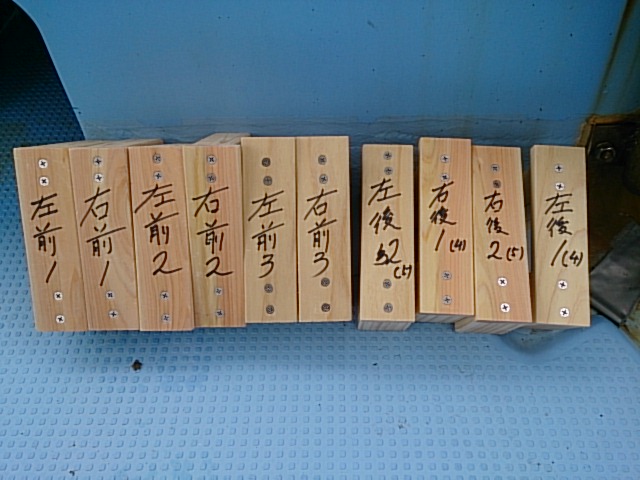 左前1
右前1
左前2
右前2
左前3
右前3
左後2(5)
右後1(4)
右後2(5)
左後1(4)